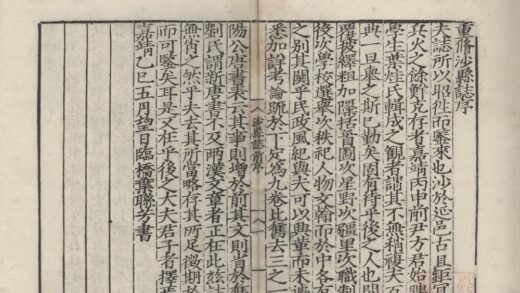 重脩沙縣誌序
夫誌所以昭徃而鑒來也沙於延邑古且鉅
兵火之餘鮮克存者嘉靖丙申前尹方君始
學生葉煃氏輯成之觀者謂其不無稍複夫
典一旦舉之斯已勤矣固有待乎後之人也
覆披繹粗加隱括首圖次星野次疆里次職制
後次學校選舉次秩祀人物文翰而於中各有
之别其關乎民政風紀與夫可以興革而未
悉加詳考論跡於下定為九卷比舊去三之
沙縣誌前序
陽公唐書表云其事則增於前其文則省於
劉氏謂新唐書不及兩漢文章者正在此兹誌
無肖之然乎夫去其所當略存其所足徵
而可略矣耳是又在乎後之大夫君子者擇焉
嘉靖乙巳五月望日臨橋葉聯芳書